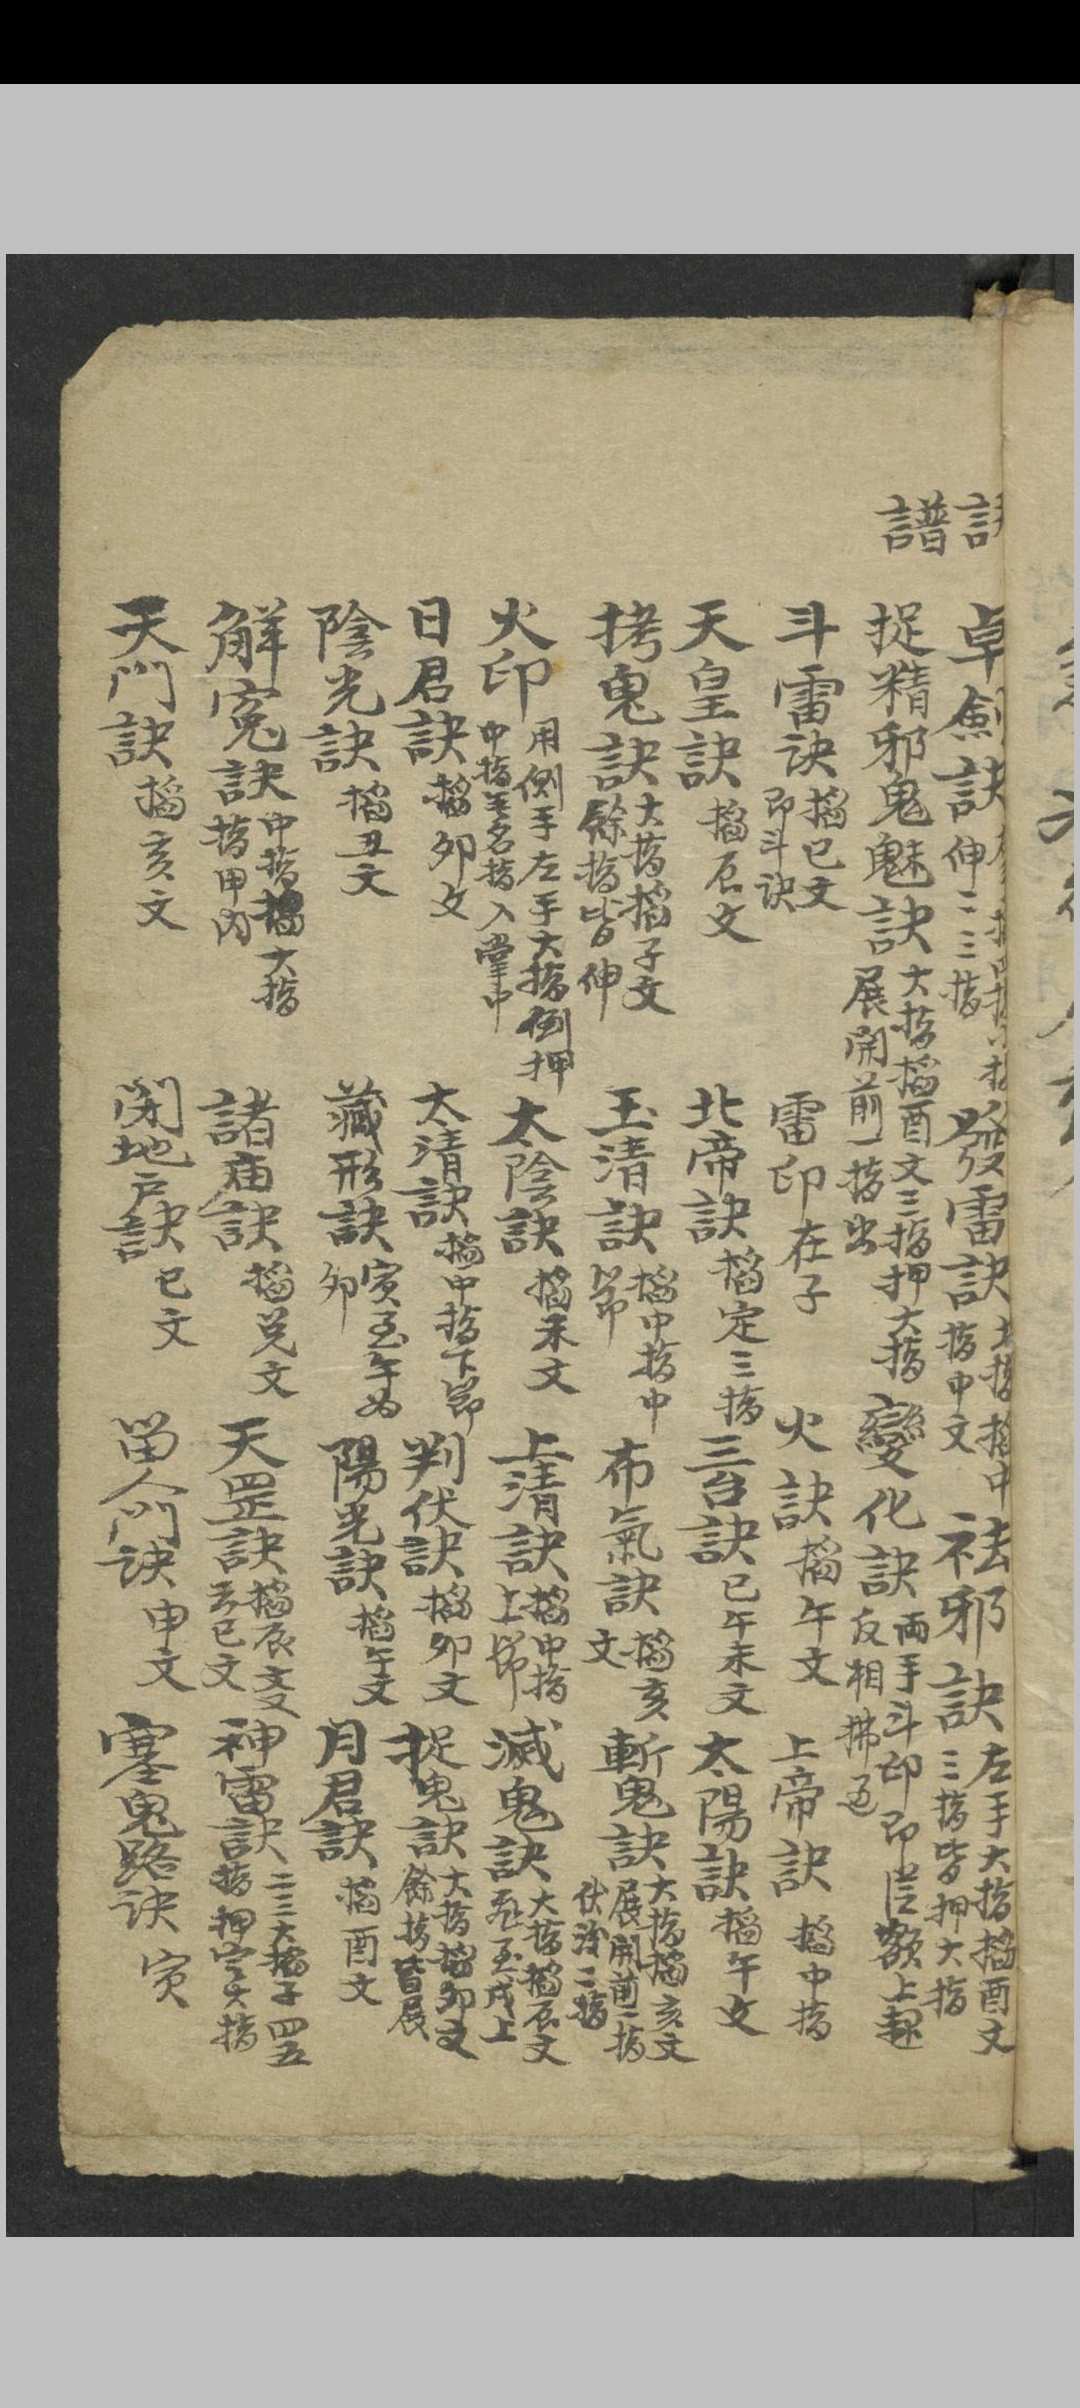 訣譜
卓劍訣 伸二三指 發雷訣 大指掐中指中文 祛邪訣 左手大指掐酉文三指皆押大指
捉精邪鬼魅訣 大指掐酉文三指押大指展開前一指出 變化訣 兩手斗印即從額上起反相拂過
斗雷訣 掐巳文即斗訣 雷印在子 火訣 掐午文 上帝訣 掐中指
天皇訣 掐辰文 北帝訣 掐定三指 三台訣 巳午未文 太陽訣 掐午文
拷鬼訣 大指掐子文餘指皆伸 玉清訣 掐中指中節 布氣訣 掐亥文 斬鬼訣 大指掐亥文展開前二指伏後二指
火印 用側手左手大指側押中指無名指入掌中 太陰訣 掐未文 上清訣 掐中指上節 滅鬼訣 大指掐辰文至戌上
日君訣 掐卯文 太清訣 掐中指下節 判伏訣 掐卯文 捉鬼訣 大指掐卯文餘指皆展
陰光訣 掐丑文 藏形訣 寅至午為卯 陽光訣 掐午文 月君訣 掐酉文
解寃訣 中指掐大指指甲內 諸庙訣 掐兌文 天罡訣 掐辰文又云巳文 神雷訣 二三大掐子四五指押定大指
天門訣 掐亥文 閉地户訣 巳文 留人門訣 申文 塞鬼路訣 寅